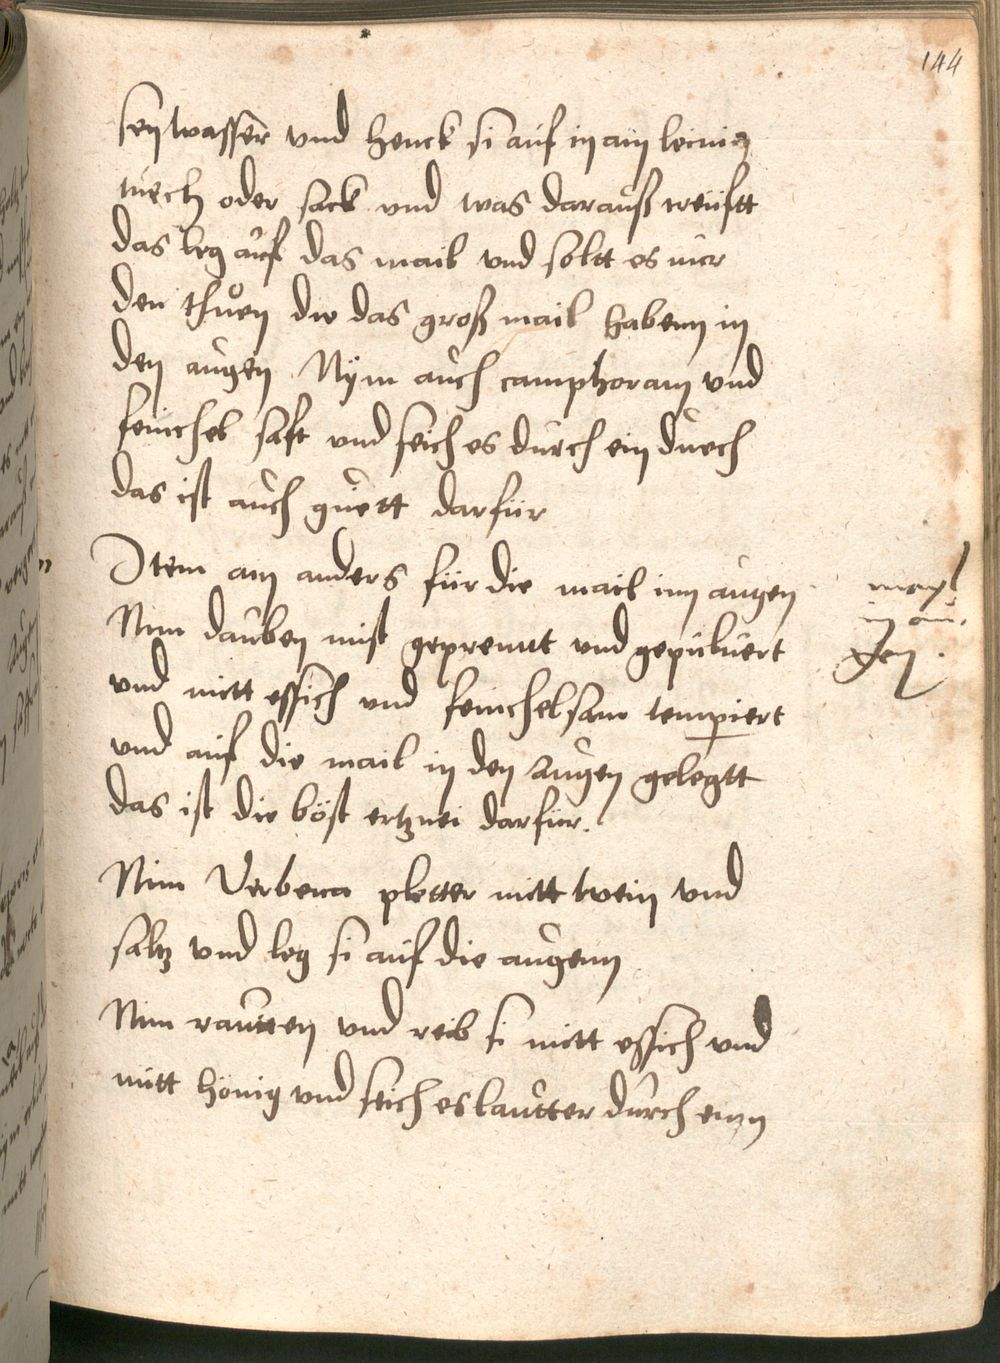 144
sen wasser vnd henck si auf in ain leinin
tuech oder sack vnd was darauß treüftt
das leg auf das mail vnd soltt es nur
den thuen die das groß mail habenn in
den augen Nym auch camphoram vnd
fenichel saft vnd seich es durch ein duech
das ist auch guett darfür
Item ain anders für die mail inn augen
mayl
in au.
gen.
Nim dauben mist geprennt vnd gepuluert
vnd mitt essich vnd fenichelsam tempiert
vnd auf die mail in den augen gelegtt
das ist die böst ertznei darfür.
Nim Verbena pletter mitt wein vnd
saltz vnd leg si auf die augenn
Nim rautten vnd reib si mitt essich vnd
mitt hönig vnd seich es lautter durch einn